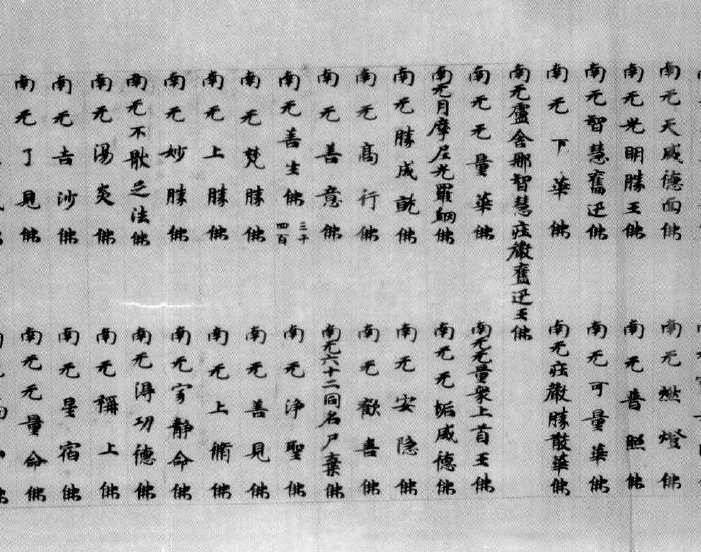 南无天威德面佛　南无燃燈佛
南无光明勝王佛　南无普照佛
南无智慧奮迅佛　南无可量華佛
南无下華佛　南无莊嚴勝散華佛
南无盧舍那智慧莊嚴奮迅王佛
南无无量華佛　南无无量衆上首王佛
南无月摩尼光羅網佛　南无无垢威德佛
南无勝成就佛　南无安隐佛
南无高行佛　南无歡喜佛
南无善意佛　南无六十二同名尸棄佛
南无善生佛 三千四百　南无淨聖佛
南无梵勝佛　南无善見佛
南无上勝佛　南无上脩佛
南无妙勝佛　南无寂靜命佛
南无不歇之法佛　南无得功德佛
南无湯炎佛　南无稱上佛
南无吉沙佛　南无星宿佛
南无了見佛　南无无量命佛